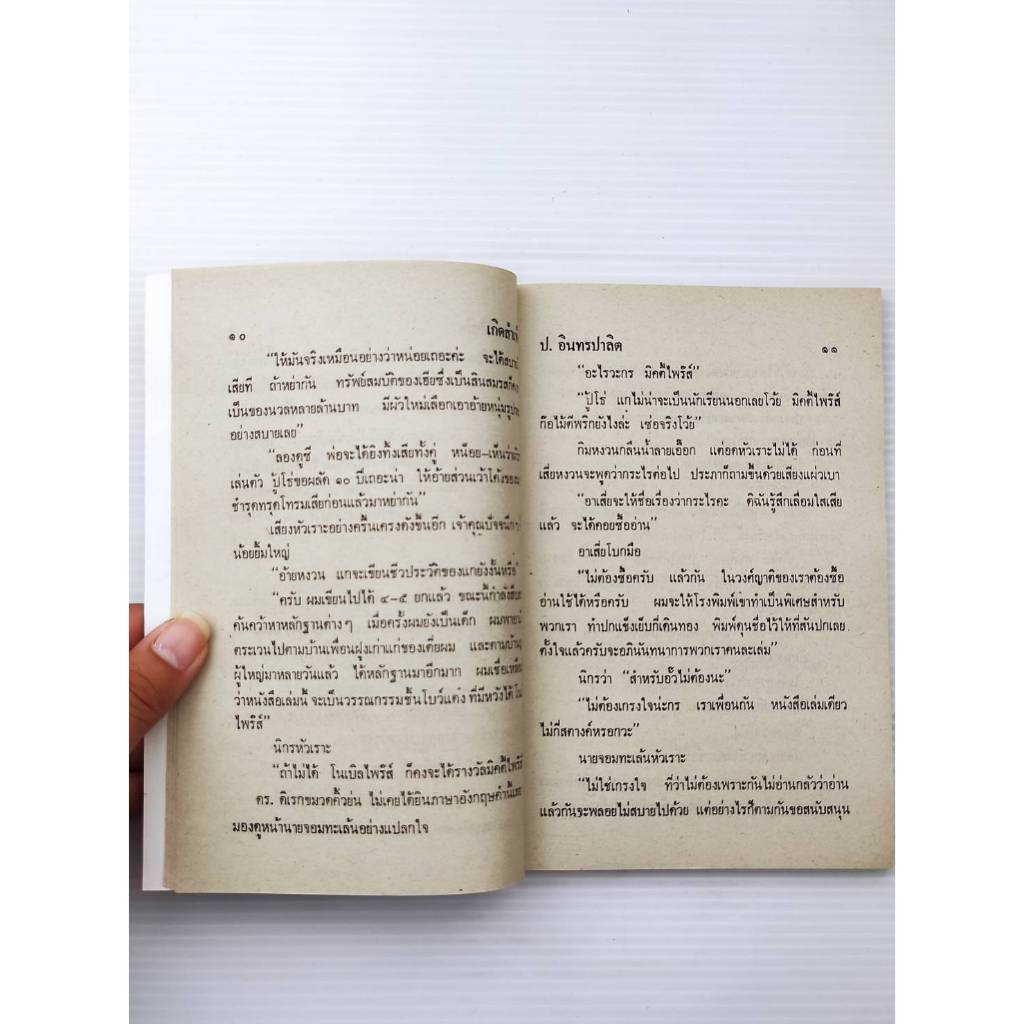 ๑๐
“ให้มันจริงเหมือนอย่างว่าหน่อยเถอะค่ะ จะได้สบาย
เสียที ถ้าหย่ากัน ทรัพย์สมบัติของเฮียซึ่งเป็นสินสมรสก็
เป็นของนวลหลายล้านบาท มีผัวใหม่เลือกเอาอ้ายหนุ่ม
อย่างสบายเลย”
“ลองดูซี พ่อจะได้ยิงทิ้งเสียทั้งคู่ หน็อย-เห็น
เล่นตัว ปู้โธ่ขอผลัด ๑๐ ปีเถอะน่า ให้อ้ายส่วนเว้าโค้ง
ชำรุดทรุดโทรมเสียก่อนแล้วมาหย่ากัน”
เสียงหัวเราะอย่างครื้นเครงดังขึ้นอีก เจ้าคุณปัจจนึก
น้อยยิ้มใหญ่
“อ้ายหงวน แกจะเขียนชีวประวัติของแกยังงั้นหรือ”
“ครับ ผมเขียนไปได้ ๔-๕ ยกแล้ว ขณะนี้กำลังสืบ
ค้นคว้าหาหลักฐานต่างๆ เมื่อครั้งผมยังเป็นเด็ก ผม
ตระเวนไปตามบ้านเพื่อนฝูงเก่าแก่ของเตี่ยผม และตามบ้าน
ผู้ใหญ่มาหลายวันแล้ว ได้หลักฐานมาอีกมาก ผมเชื่อ
ว่าหนังสือเล่มนี้ จะเป็นวรรณกรรมชั้นโบว์แดง ที่มีหวังได้
ไพร๊ส์”
นิกรหัวเราะ
“ถ้าไม่ได้ โนเบิลไพร๊ส์ ก็คงจะได้รางวัลมิคตี้ไพร๊ส์
ดร. ดิเรกขมวดคิ้วย่น ไม่เคยได้ยินภาษาอังกฤษคำนี้
มองดูหน้านายจอมทะเล้นอย่างแปลกใจ
ป. อินทรปาลิต
๑๑
“อะไรวะกร มิคตี้ไพร๊ส์”
“ปู้โธ่ แกไม่น่าจะเป็นนักเรียนนอกเลยโว้ย มิคตี้ไพร๊ส์
ก๊อไม้ตีพริกยังไงล่ะ เซ่อจริงโว้ย”
กิมหงวนกลืนน้ำลายเอื๊อก แต่อดหัวเราะไม่ได้ ก่อนที่
เสี่ยหงวนจะพูดว่ากระไรต่อไป ประภาก็ถามขึ้นด้วยเสียงแผ่วเบา
“อาเสี่ยจะให้ชื่อเรื่องว่ากระไรคะ ดิฉันรู้สึกเลื่อมใสเสีย
แล้ว จะได้คอยซื้ออ่าน”
อาเสี่ยโบกมือ
“ไม่ต้องซื้อครับ แล้วกัน ในวงศ์ญาติของเราต้องซื้อ
อ่านใช้ได้หรือครับ ผมจะให้โรงพิมพ์เขาทำเป็นพิเศษสำหรับ
พวกเรา ทำปกแข็งเย็บกี่เดินทอง พิมพ์ดุนชื่อไว้ให้ที่สันปกเลย
ตั้งใจแล้วครับจะอภินันทนาการพวกเราคนละเล่ม”
นิกรว่า “สำหรับอั๊วไม่ต้องนะ”
“ไม่ต้องเกรงใจน่ะกร เราเพื่อนกัน หนังสือเล่มเดียว
ไม่กี่สตางค์หรอกวะ”
นายจอมทะเล้นหัวเราะ
“ไม่ใช่เกรงใจ ที่ว่าไม่ต้องเพราะกันไม่อ่านกลัวว่าอ่าน
แล้วกันจะพลอยไม่สบายไปด้วย แต่อย่างไรก็ตามกันขอสนับสนุน